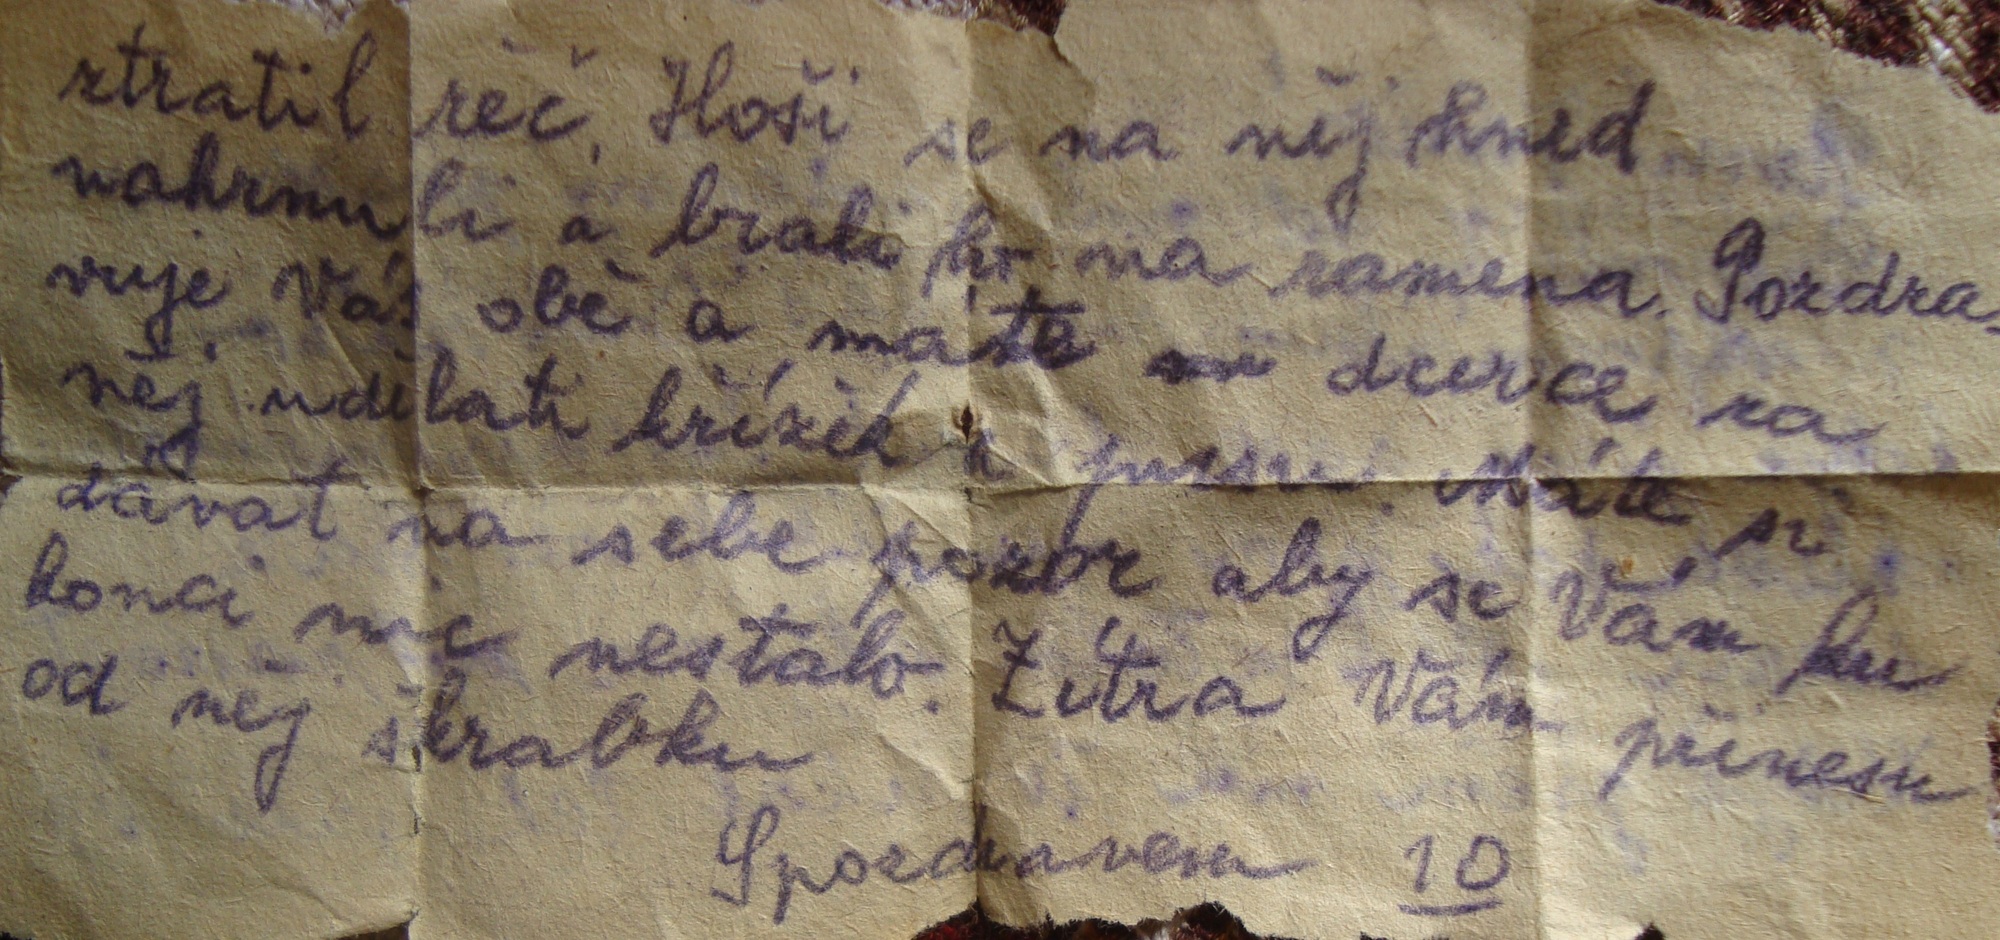 ztratil řeč. Hoši se na něj hned
nahrnuli a brali ho na ramena. Pozdra-
vuje Vás obě a máte dcerce za
něj udělati křížek s pusou. Máte si
dávat na sebe pozor aby se Vám ku
konci nic nestalo. Zítra Vám přinesu
od něj škrabku
S pozdravem 10